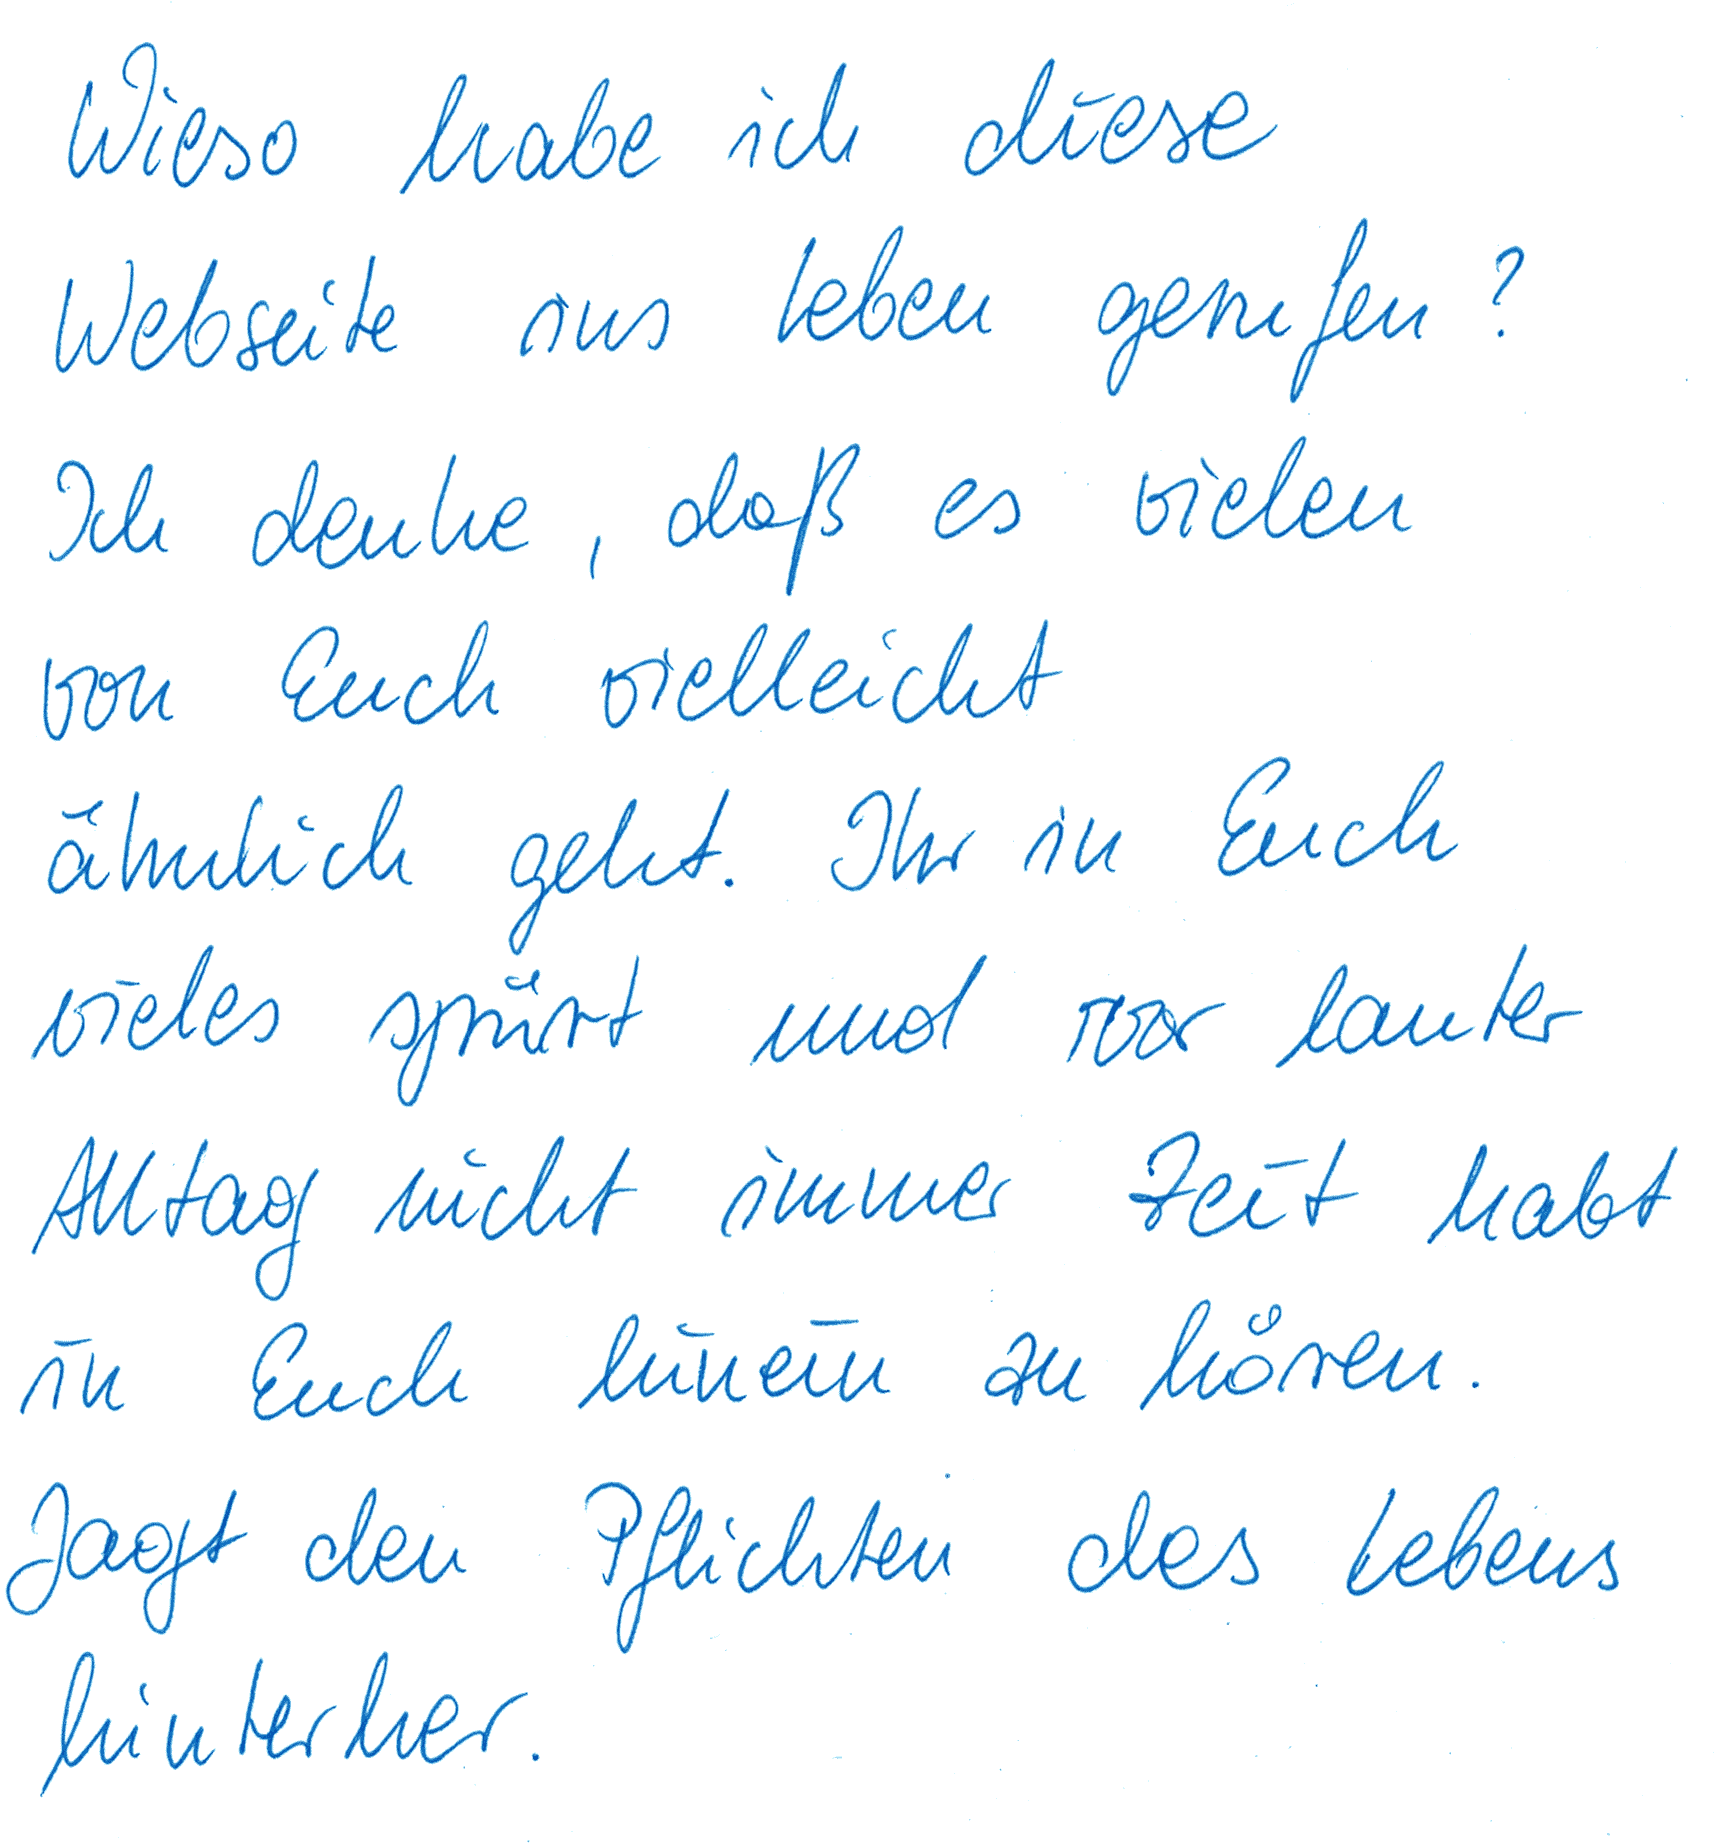 Wieso habe ich diese
Webseite ins Leben gerufen?
Ich denke, daß es vielen
von Euch vielleicht
ähnlich geht. Ihr in Euch
vieles spürt und vor lauter
Alltag nicht immer Zeit habt
in Euch hinein zu hören.
Jagt den Pflichten des Lebens
hinterher.